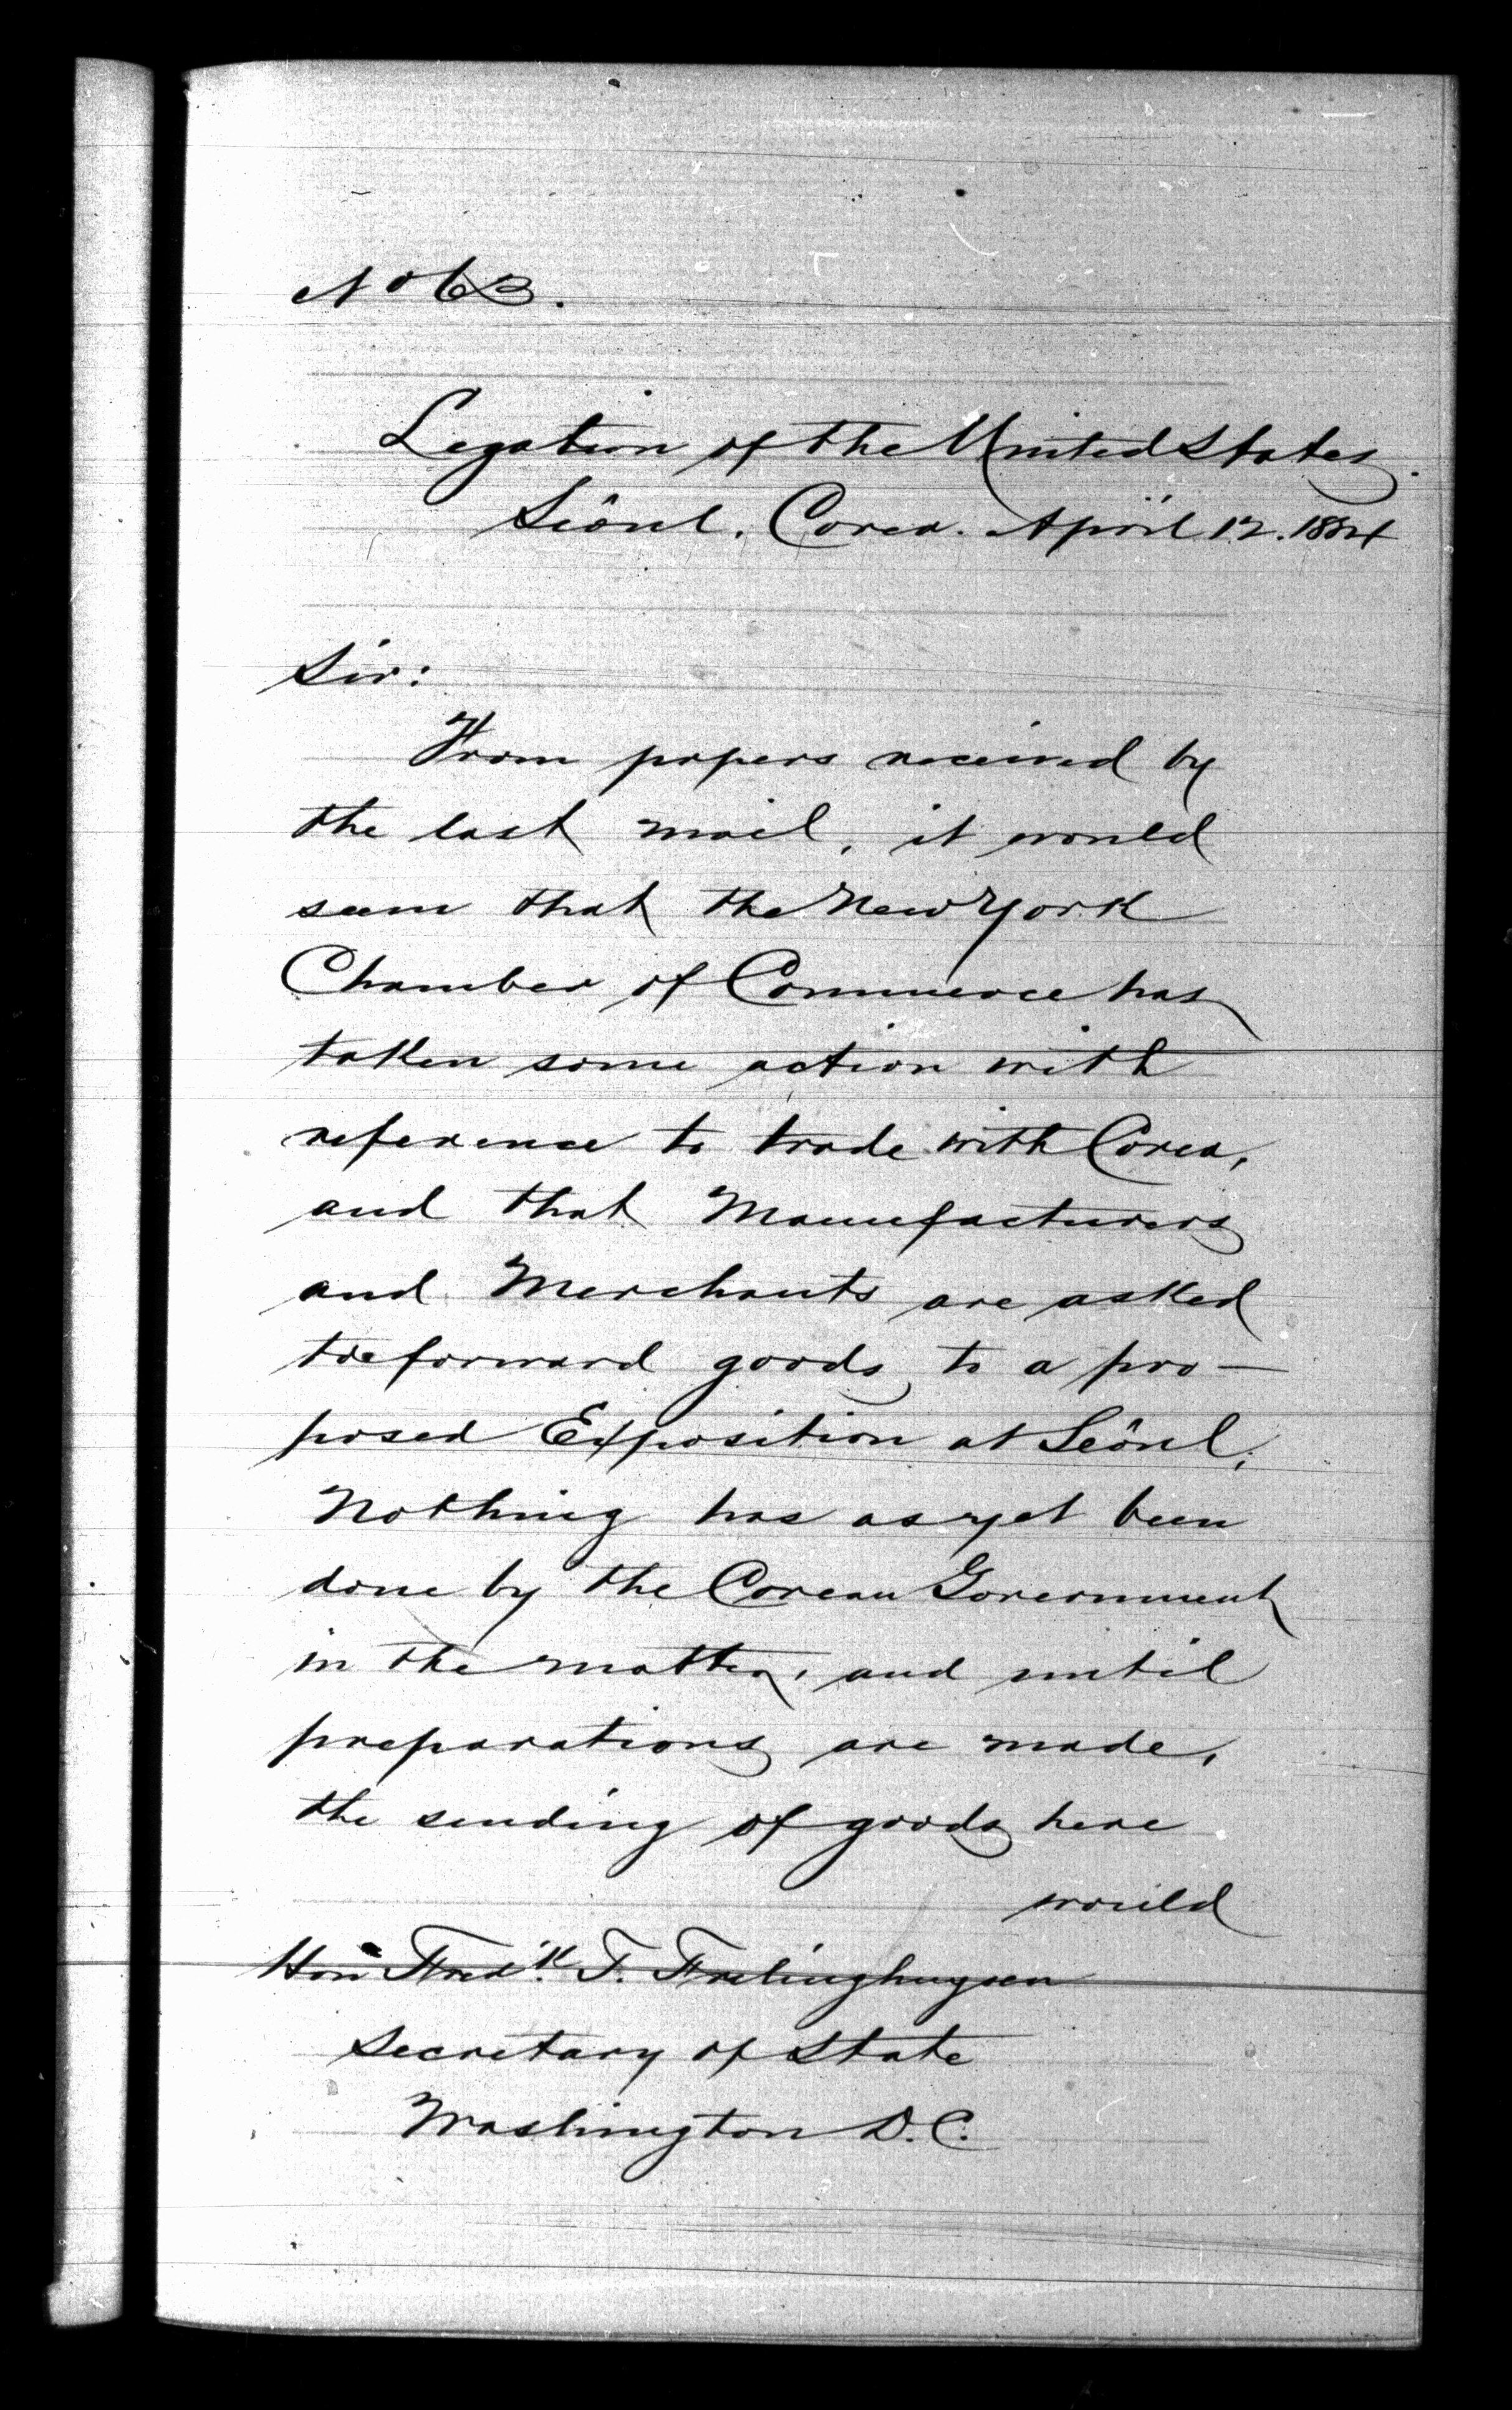 No 63.
Legation of the United States.
Seôul, Corea. April 12. 1884
Sir:
From papers received by
the last mail, it would
seem that the New York
Chamber of Commerce has
taken some action with
reference to trade with Corea,
and that Manufacturers
and Merchants are asked
to forward goods to a pro-
posed Exposition at Seôul,
Nothing has as yet been
done by the Corean Government
in the matter, and until
preparations are made,
the sending of goods here
would
Hon Fredk. T. Frelinghuysen
Secretary of State
Washington D.C.